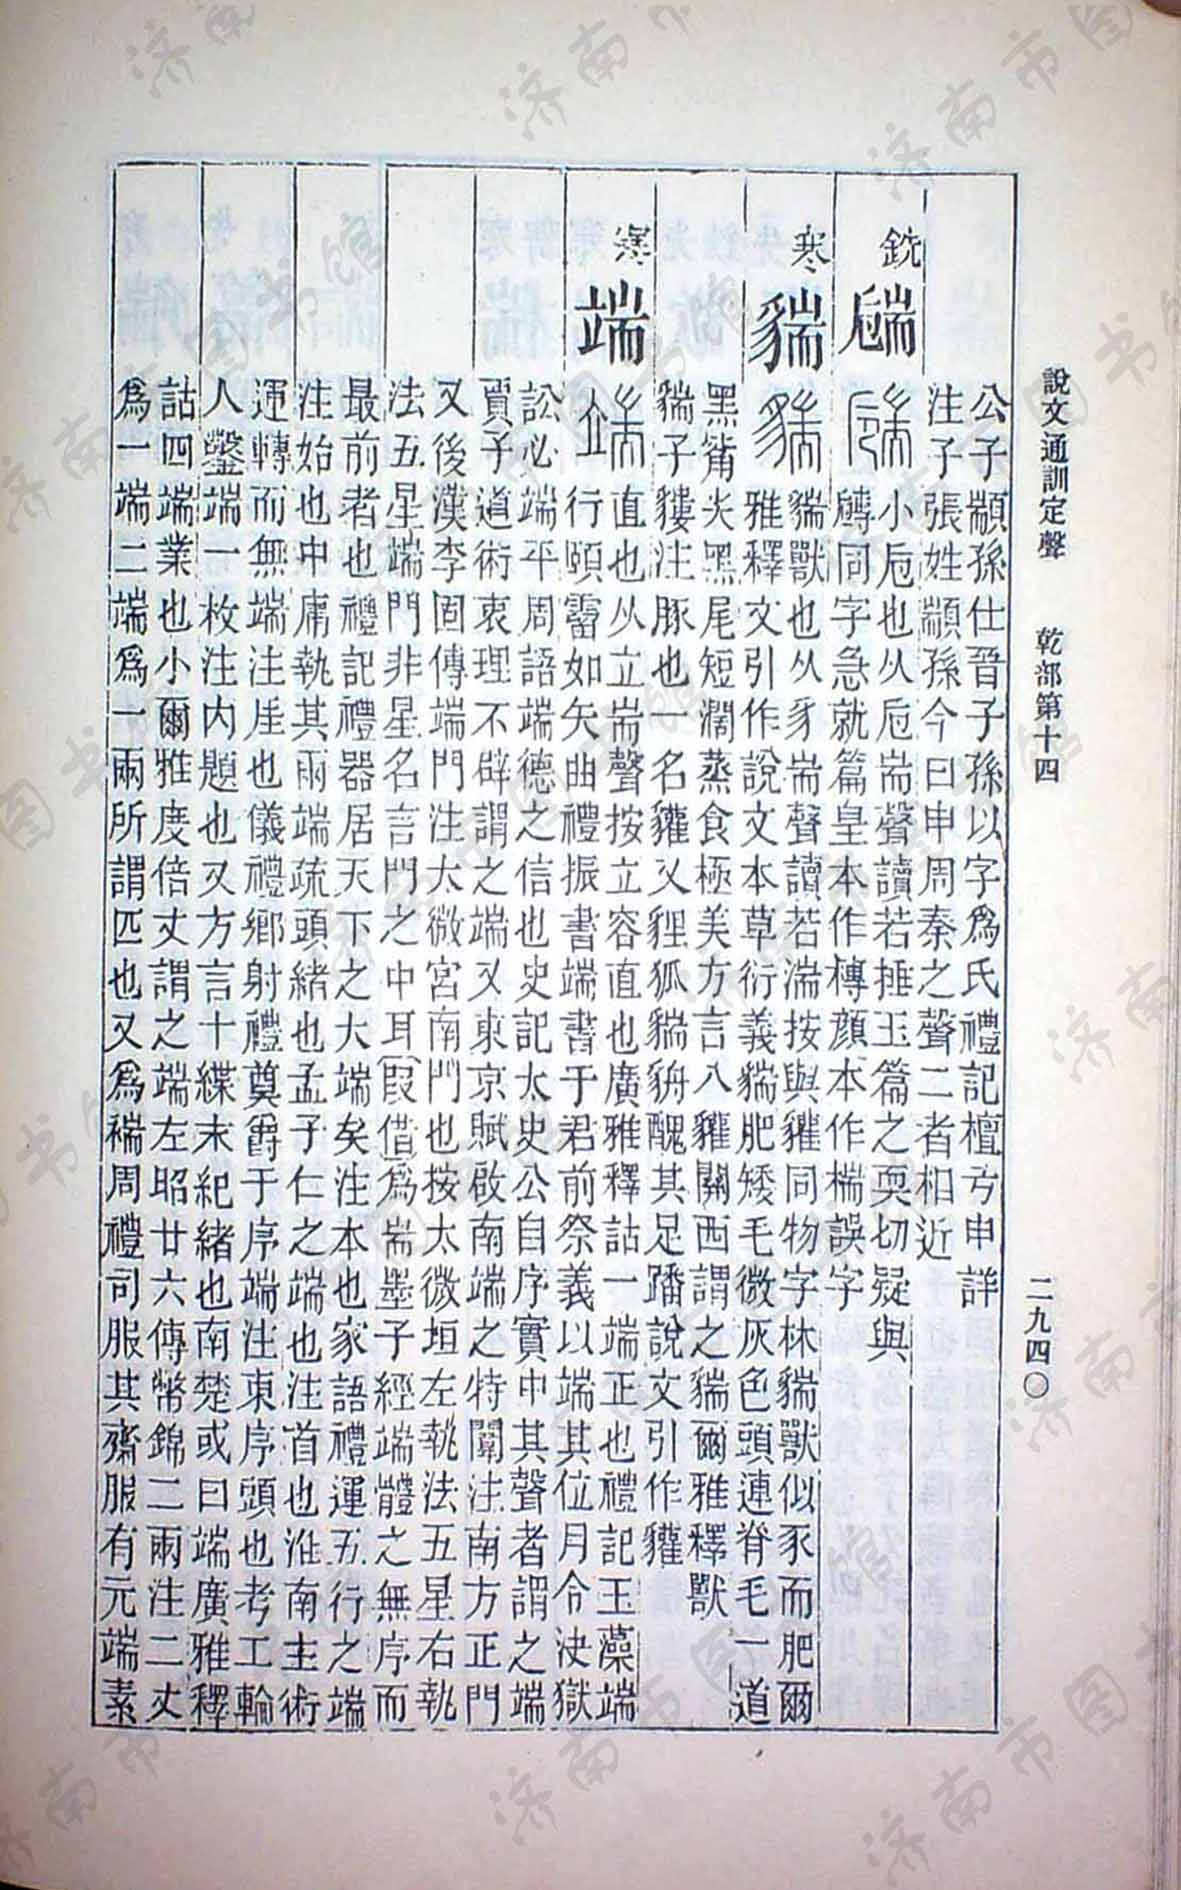 說文通訓定聲　乾部第十四　二九四〇
公子顓孫仕晉子孫以字爲氏禮記檀弓申詳
注子張姓顓孫今曰申周秦之聲二者相近
銑
𡰢
小卮也从卮耑聲讀若捶玉篇之耎切疑與
䏝同字急就篇皇本作槫顏本作椯誤字
寒
貒
貒獸也从豸耑聲讀若湍按與貛同物字林貒獸似豕而肥爾
雅釋文引作說文本草衍義貒肥矮毛微灰色頭連脊毛一道
黑觜尖黑尾短濶蒸食極美方言八貛關西謂之貒爾雅釋獸
貒子貗注豚也一名貛又貍狐貒貈醜其足蹯說文引作貛
寒
端
直也从立耑聲按立容直也廣雅釋詁一端正也禮記玉藻端
行頤霤如矢曲禮振書端書于君前祭義以端其位月令決獄
訟必端平周語端德之信也史記太史公自序實中其聲者謂之端
賈子道術衷理不辟謂之端又東京賦啟南端之特闈注南方正門
又後漢李固傳端門注太微宮南門也按太微垣左執法五星右執
法五星端門非星名言門之中耳叚借爲耑墨子經端體之無序而
最前者也禮記禮器居天下之大端矣注本也家語禮運五行之端
注始也中庸執其兩端疏頭緒也孟子仁之端也注首也淮南主術
運轉而無端注厓也儀禮鄉射禮奠爵于序端注東序頭也考工輪
人鑿端一枚注內題也又方言十緤末紀緒也南楚或曰端廣雅釋
詁四端業也小爾雅度倍丈謂之端左昭廿六傳幣錦二兩注二丈
爲一端二端爲一兩所謂匹也又爲褍周禮司服其齋服有元端素